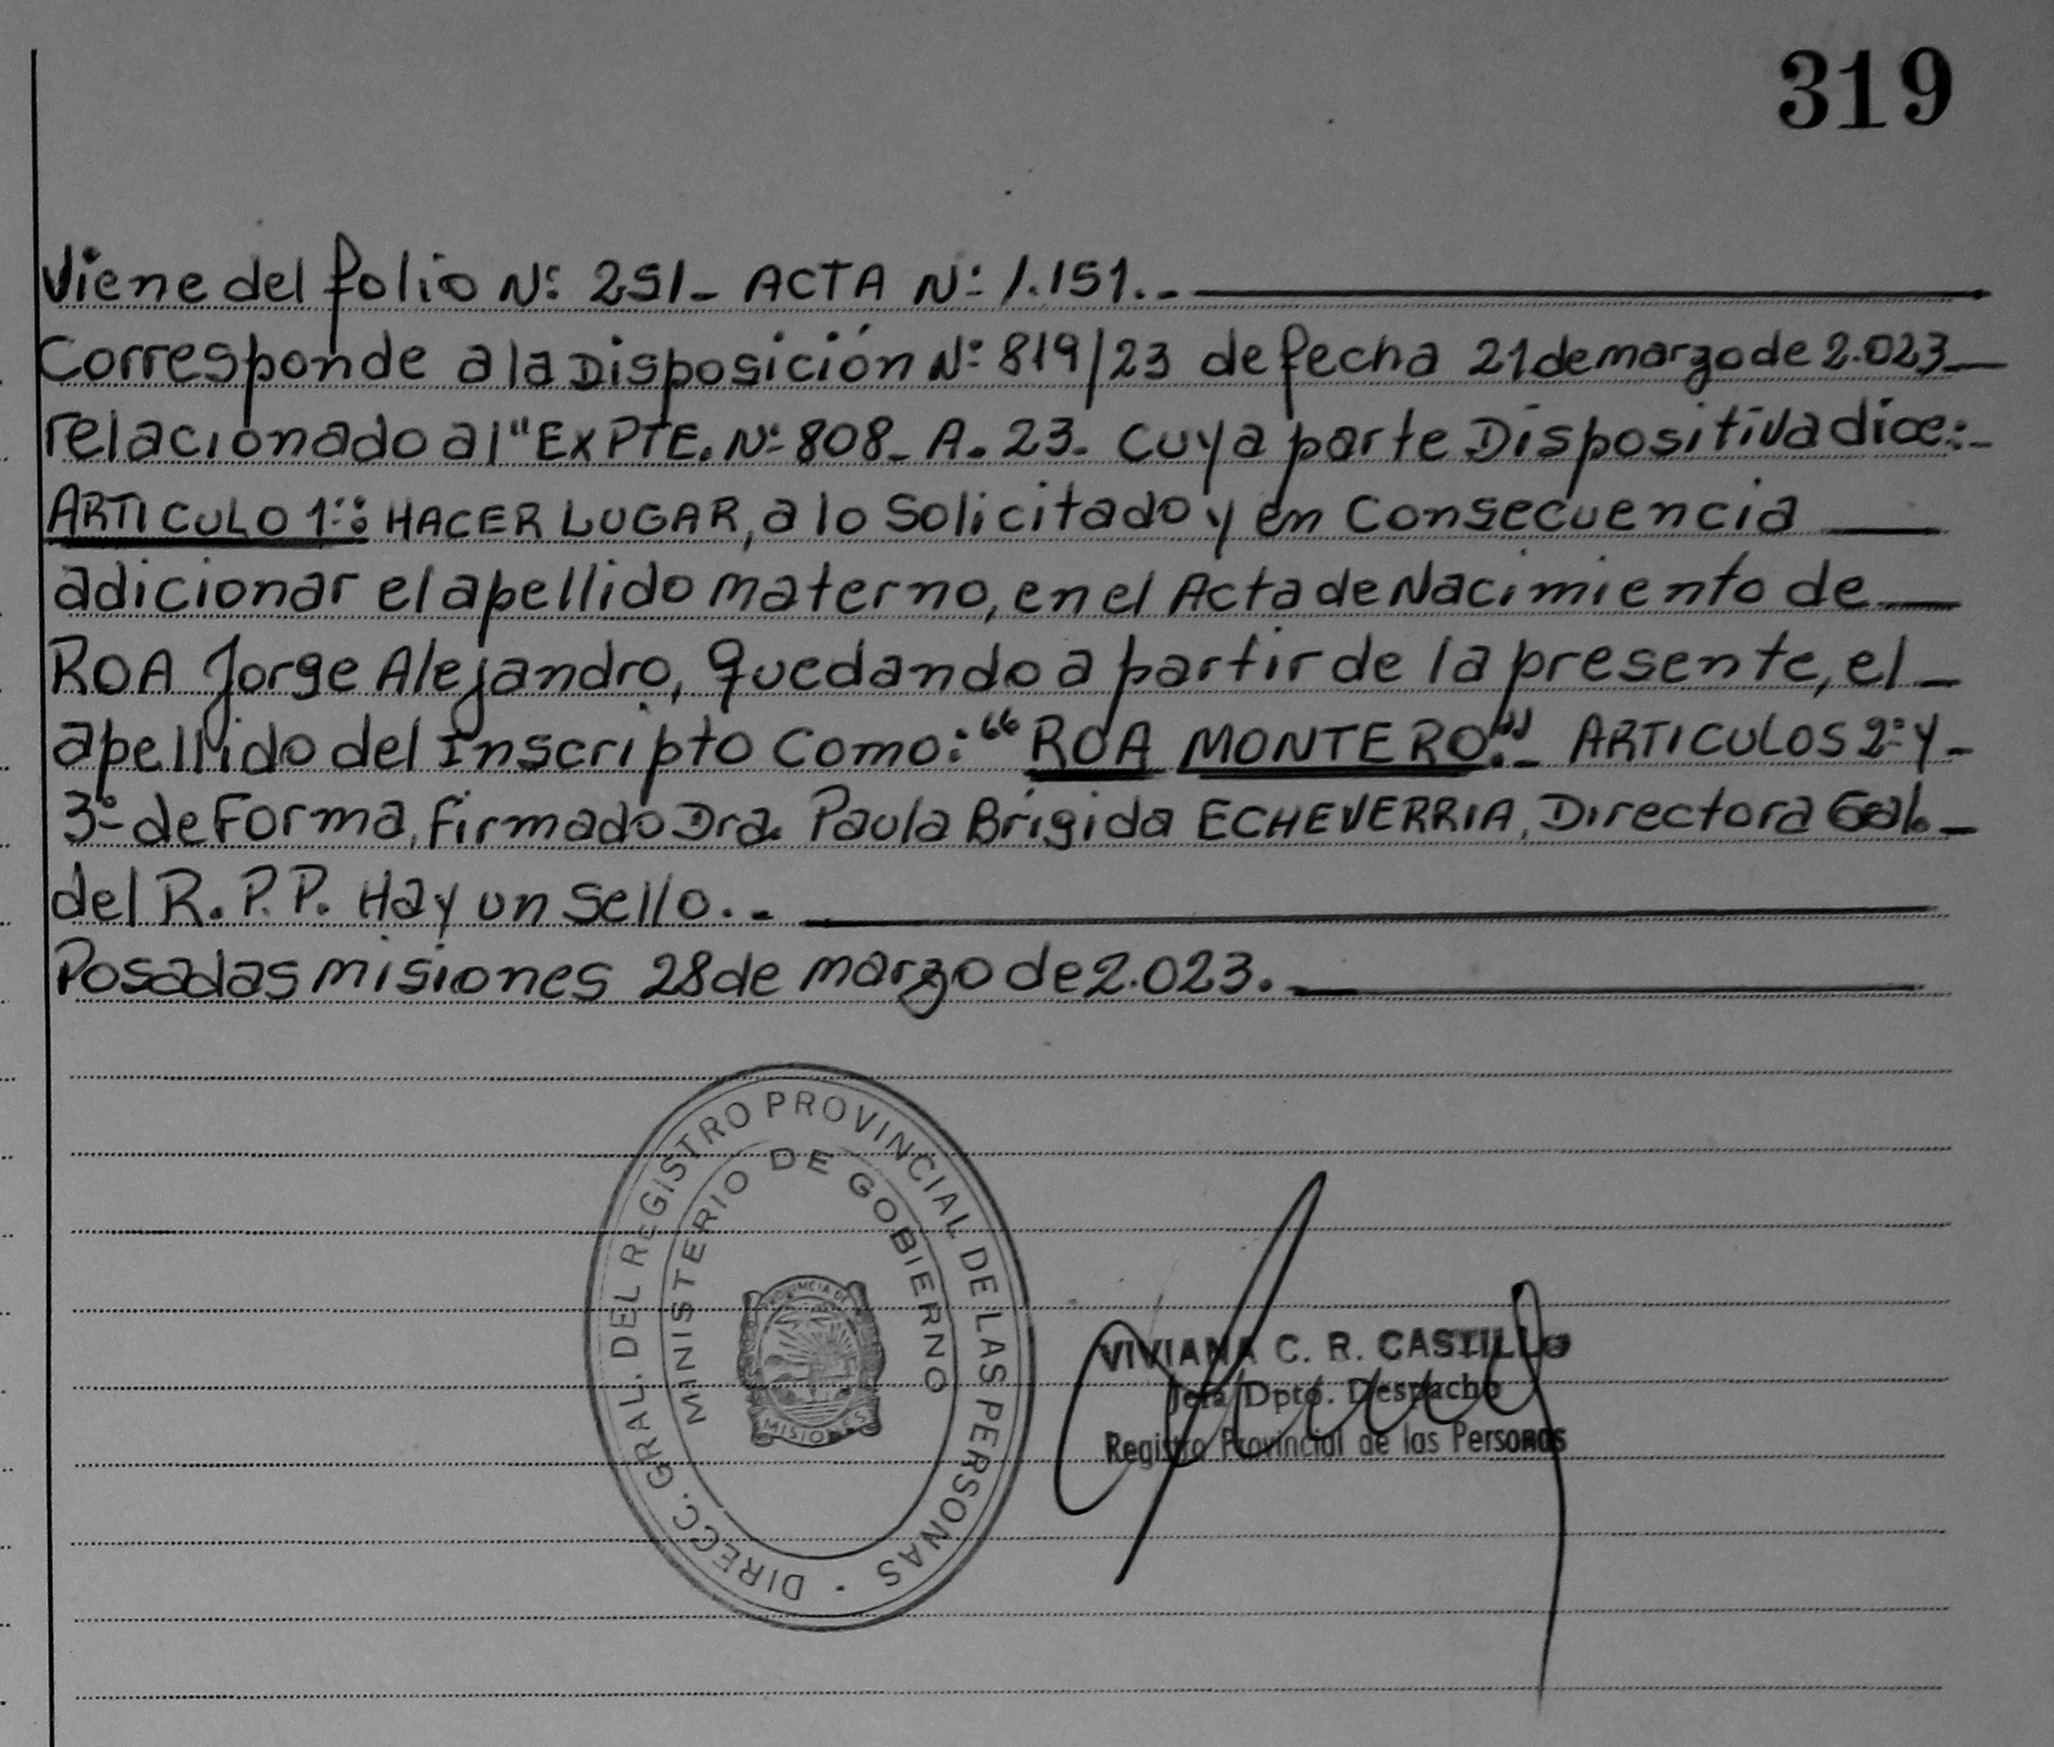 319
Viene del folio Nº: 251- ACTA Nº: 1.151.-
Corresponde a la Disposición Nº: 819/23 de fecha 21 de marzo de 2.023
relacionado al "EXPTE. Nº 808- A. 23- Cuya parte Dispositiva dice:-
ARTICULO 1º: HACER LUGAR, a lo Solicitado y en Consecuencia
adicionar el apellido materno, en el Acta de Nacimiento de
ROA Jorge Alejandro, quedando a partir de la presente, el
apellido del Inscripto Como: "ROA MONTERO".- ARTICULOS 2º y
3º de Forma, firmado Dra. Paula Brigida ECHEVERRIA, Directora Gal.
del R.P.P. Hay un Sello..-
Posadas misiones 28 de marzo de 2.023.
DIRECC. GRAL. DEL REGISTRO PROVINCIAL DE LAS PERSONAS
MINISTERIO DE GOBIERNO
PROVINCIA DE
MISIONES
VIVIANA C. R. CASTILLO
Jefa Dpto. Despacho
Registro Provincial de las Personas